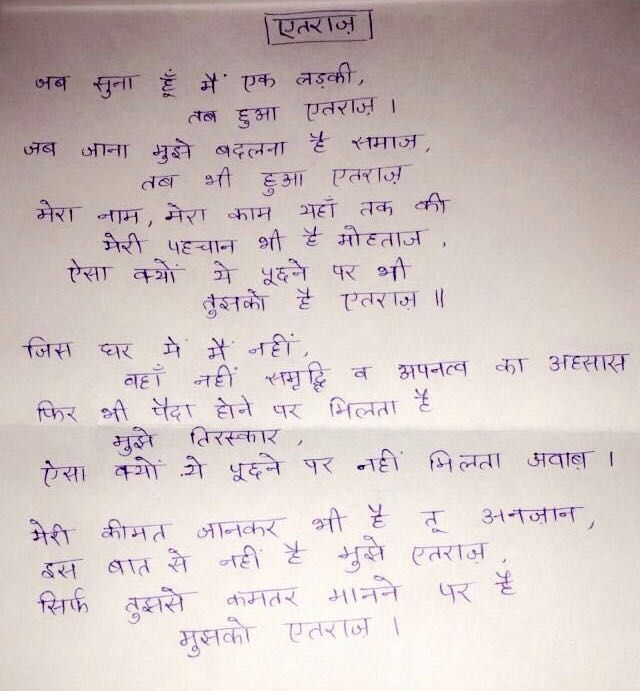 एतराज़
जब सुना हूँ मैं एक लड़की,
तब हुआ एतराज़ ।
जब जाना मुझे बदलना है समाज,
तब भी हुआ एतराज़
मेरा नाम, मेरा काम यहाँ तक की
मेरी पहचान भी है मोहताज,
ऐसा क्यों ये पूछने पर भी
तुझको है एतराज़ ॥
जिस घर में मैं नहीं,
वहाँ नहीं समृद्धि व अपनत्व का अहसास
फिर भी पैदा होने पर मिलता है
मुझे तिरस्कार,
ऐसा क्यों ये पूछने पर नहीं मिलता जवाब़ ।
मेरी कीमत जानकर भी है तू अनज़ान,
इस बात से नहीं है मुझे एतराज़,
सिर्फ तुझसे कमतर मानने पर है
मुझको एतराज़ ।